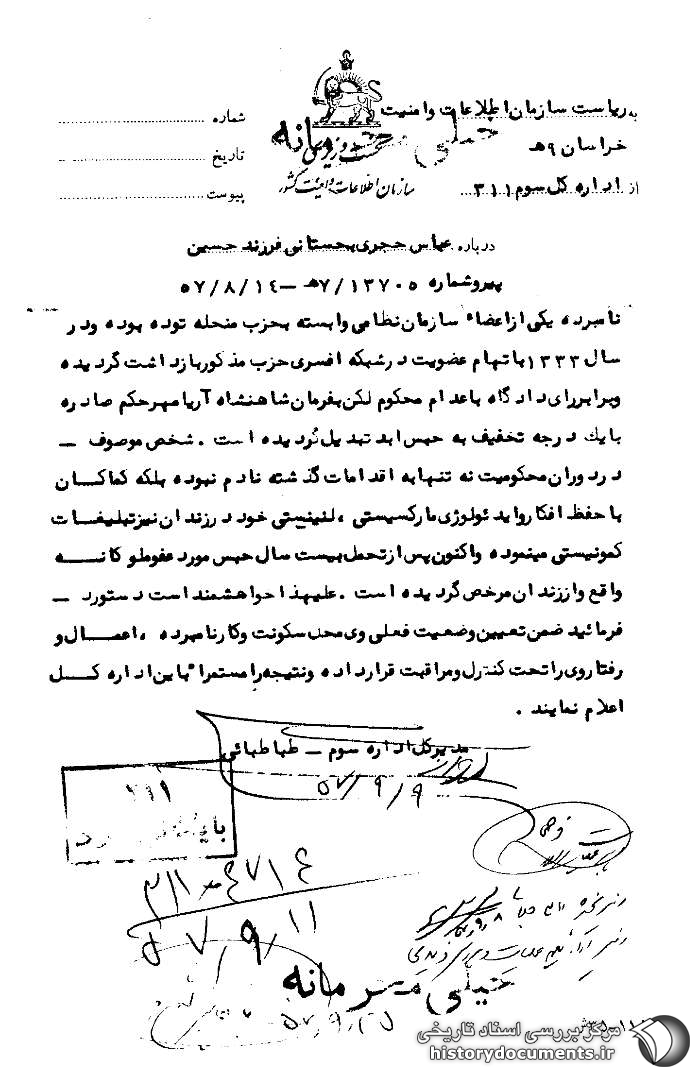 به ریاست سازمان اطلاعات وامنیت
خراسان ۹ه‍
از اداره کل سوم ۳۱۱
خیلی محرمانه
سازمان اطلاعات و امنیت کشور
شماره
تاریخ
پیوست
درباره عباس حجری بجستانی فرزند حسین
پیرو شماره ۷/۱۳۷۰۵ه‍ – ۵۷/۸/۱۴
نامبرده یکی از اعضاء سازمان نظامی وابسته بحزب منحله توده بوده ودر
سال ۱۳۳۳ باتهام عضویت در شبکه افسری حزب مذکور بازداشت گردیده
وبرابر رای دادگاه باعدام محکوم لکن بفرمان شاهنشاه آریامهر حکم صادره
بایک درجه تخفیف به حبس ابد تبدیل گردیده است . شخص موصوف –
در دوران محکومیت نه تنها به اقدامات گذشته نادم نبوده بلکه کماکان
با حفظ افکار واید ئولوژی مارکسیستی ، لنینیستی خود در زندان نیز تبلیغات
کمونیستی مینموده واکنون پس از تحمل بیست سال حبس مورد عفو ملوکانــه
واقع واز زندان مرخص گردیده است . علیهذا خواهشمند است دستورد –
فرمائید ضمن تعیین وضعیت فعلی وی محل سکونت وکار نامبرده ، اعمــال و
رفتار وی را تحت کنترل ومراقبت قرارداده ونتیجه را مستمرا" باین اداره کــل
اعلام نمایند .
مدیرکل اداره سوم – طباطبائی
۵۷/۹/۹
۳۱۱
۲۱۱-۴۷۱۴
۵۷/۹/۱۱
خیلی محرمانه
مرکز بررسی اسناد تاریخی
historydocuments.ir